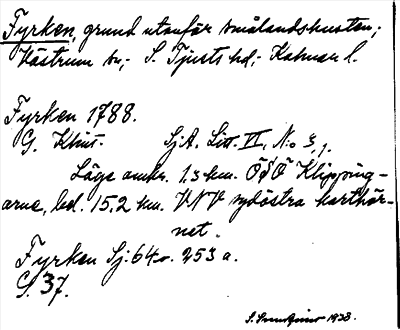 Fyrken, grund utanför Smålandskusten;
Västrum sn; S. Tjusts hd; Kalmar l.
Fyrken 1788.
G. Klint. Sj.A. Litt. VI, No 3, 1.
Läge omkr. 1,3 km. ÖSÖ Klipping-
arne, bel. 15,2 km. VNV sydöstra karthör-
net.
Fyrken Sj. 64 253 a.
S. 37.
1938.